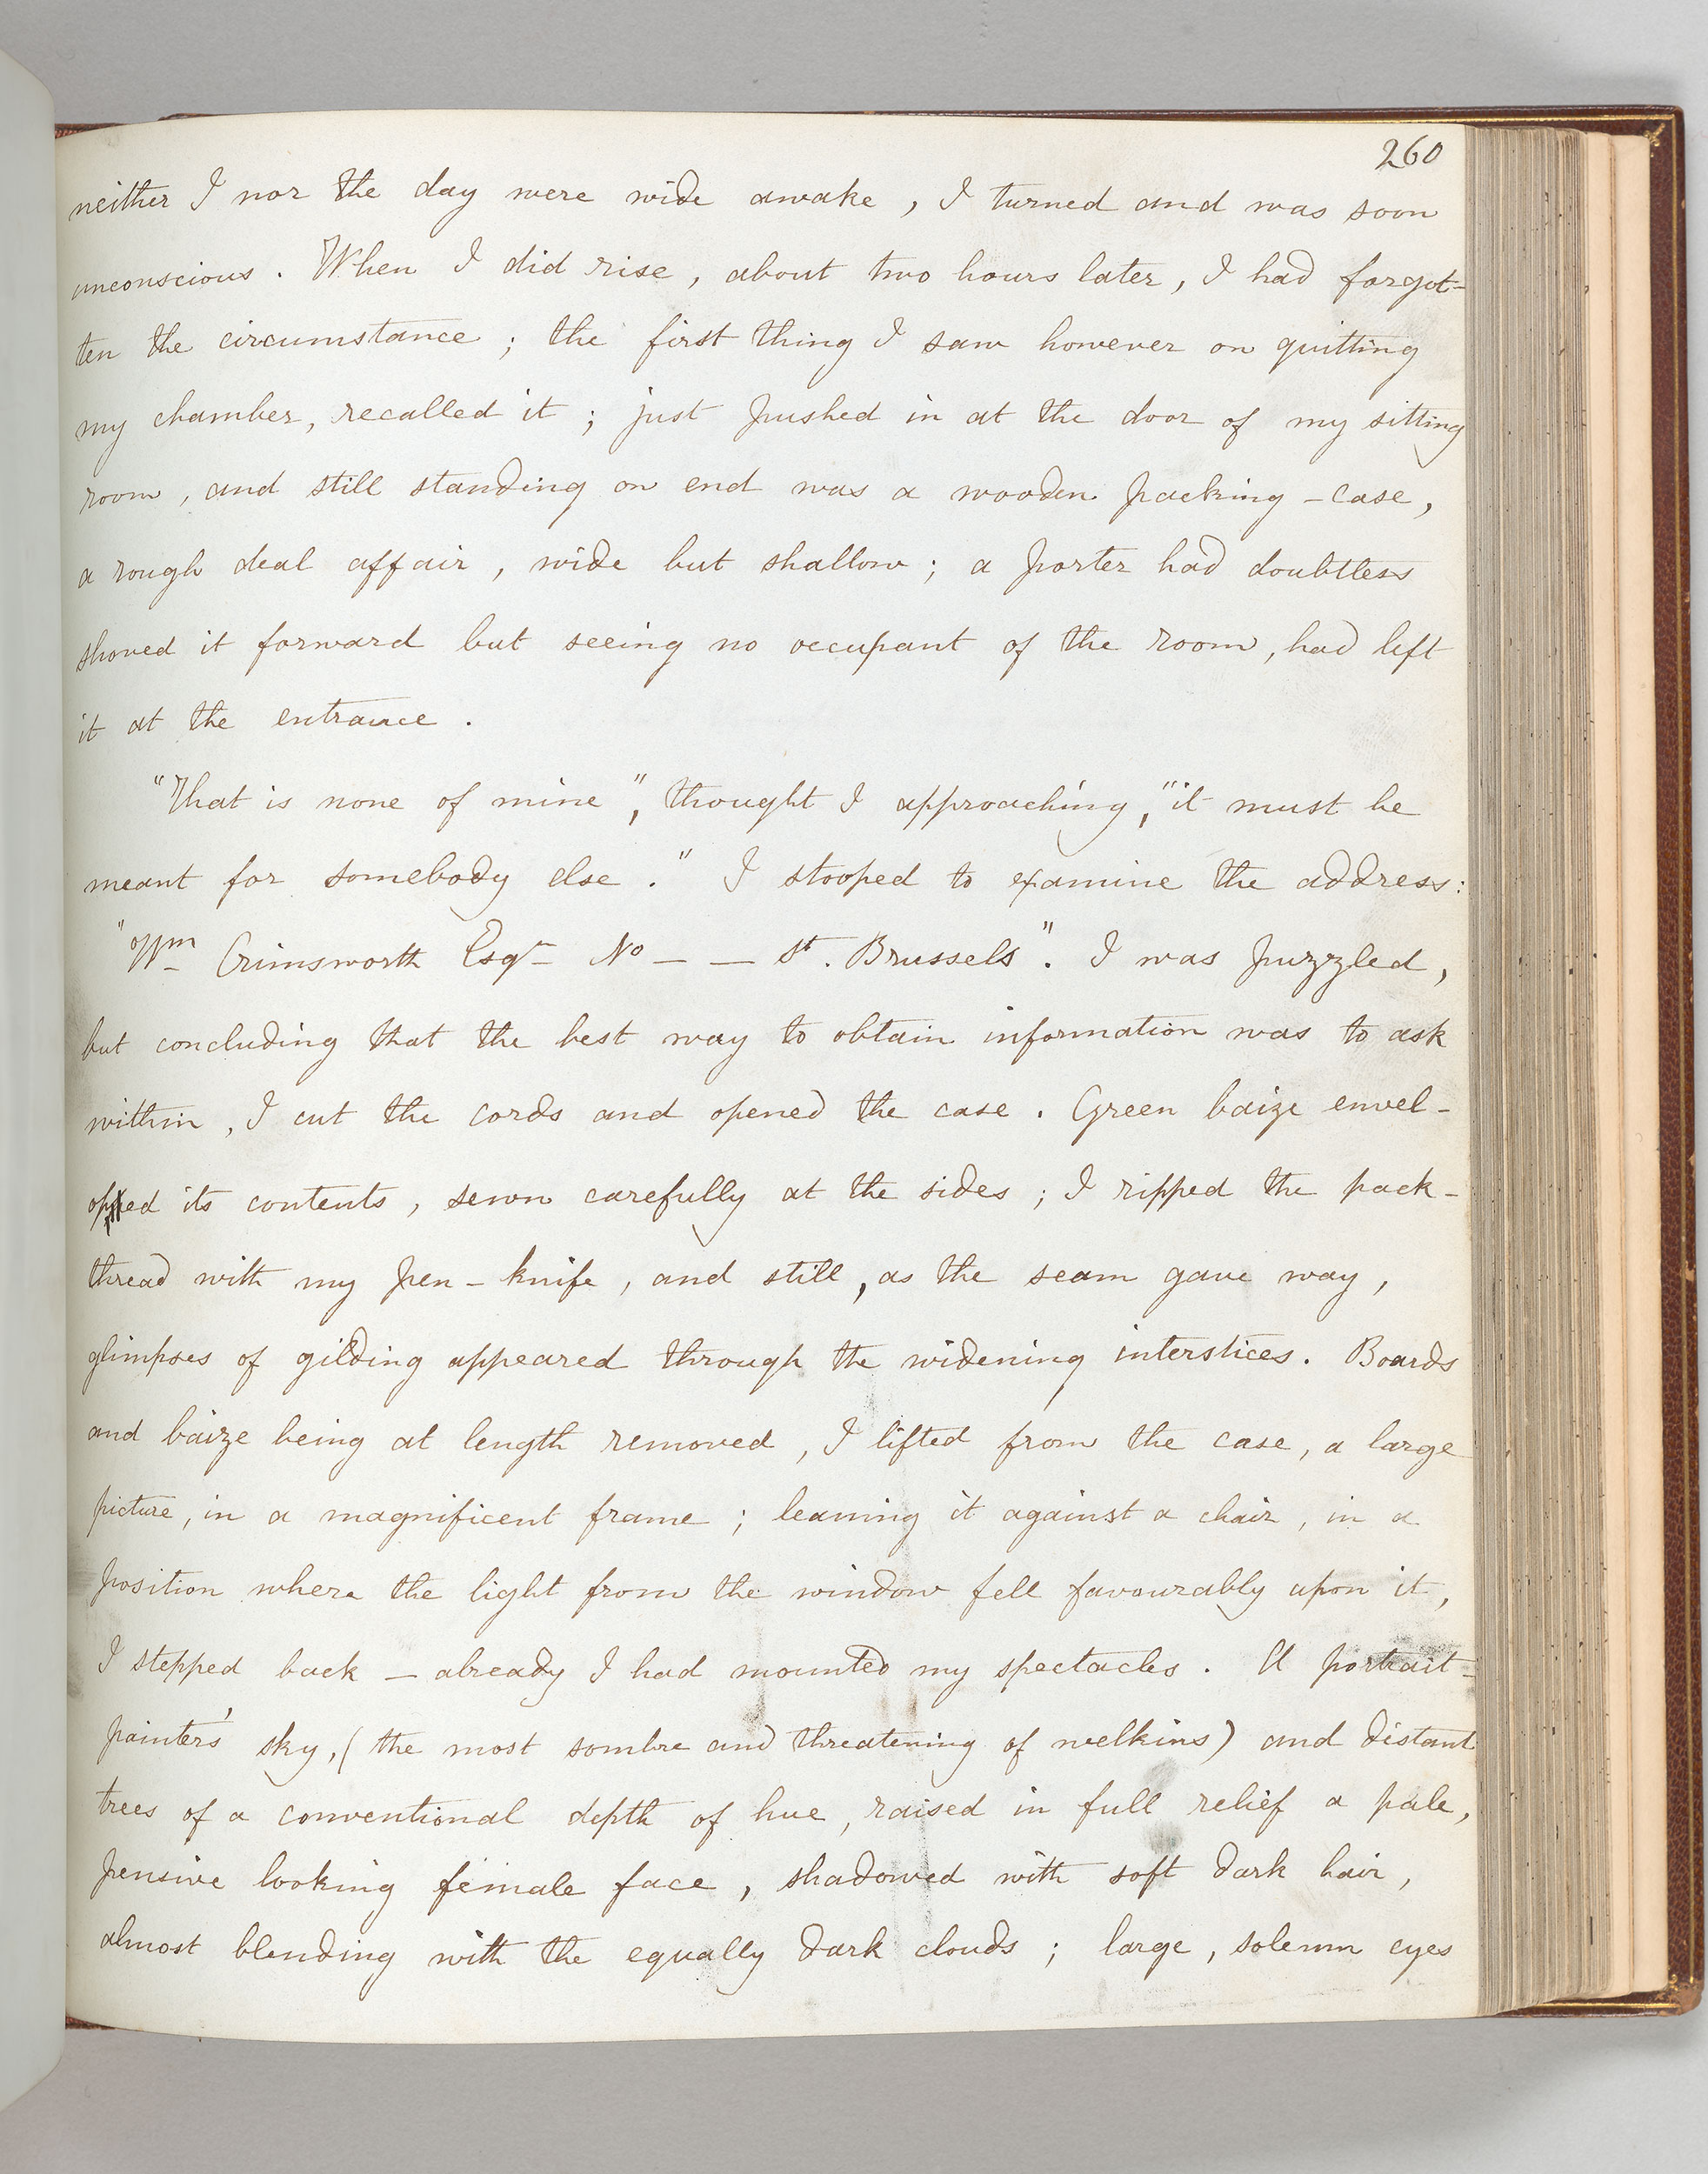 260
neither I nor the day were wide awake, I turned and was soon
unconscious. When I did rise, about two hours later, I had forgot-
ten the circumstance; the first thing I saw however on quitting
my chamber, recalled it; just pushed in at the door of my sitting
room, and still standing on end was a wooden packing-case,
a rough deal affair, wide but shallow; a porter had doubtless
shoved it forward but seeing no occupant of the room, had left
it at the entrance.
"That is none of mine", thought I approaching, "it must be
meant for somebody else." I stooped to examine the address:
"Wm Crimsworth Esqr No — — St. Brussels". I was puzzled,
but concluding that the best way to obtain information was to ask
within, I cut the cords and opened the case. Green baize envel-
oped its contents, sewn carefully at the sides; I ripped the pack-
thread with my pen-knife, and still, as the seam gave way,
glimpses of gilding appeared through the widening interstices. Boards
and baize being at length removed, I lifted from the case, a large
picture, in a magnificent frame; leaning it against a chair, in a
position where the light from the window fell favourably upon it,
I stepped back — already I had mounted my spectacles. A portrait-
painter's sky, (the most sombre and threatening of welkins) and distant
trees of a conventional depth of hue, raised in full relief a pale,
pensive looking female face, shadowed with soft dark hair,
almost blending with the equally dark clouds; large, solemn eyes